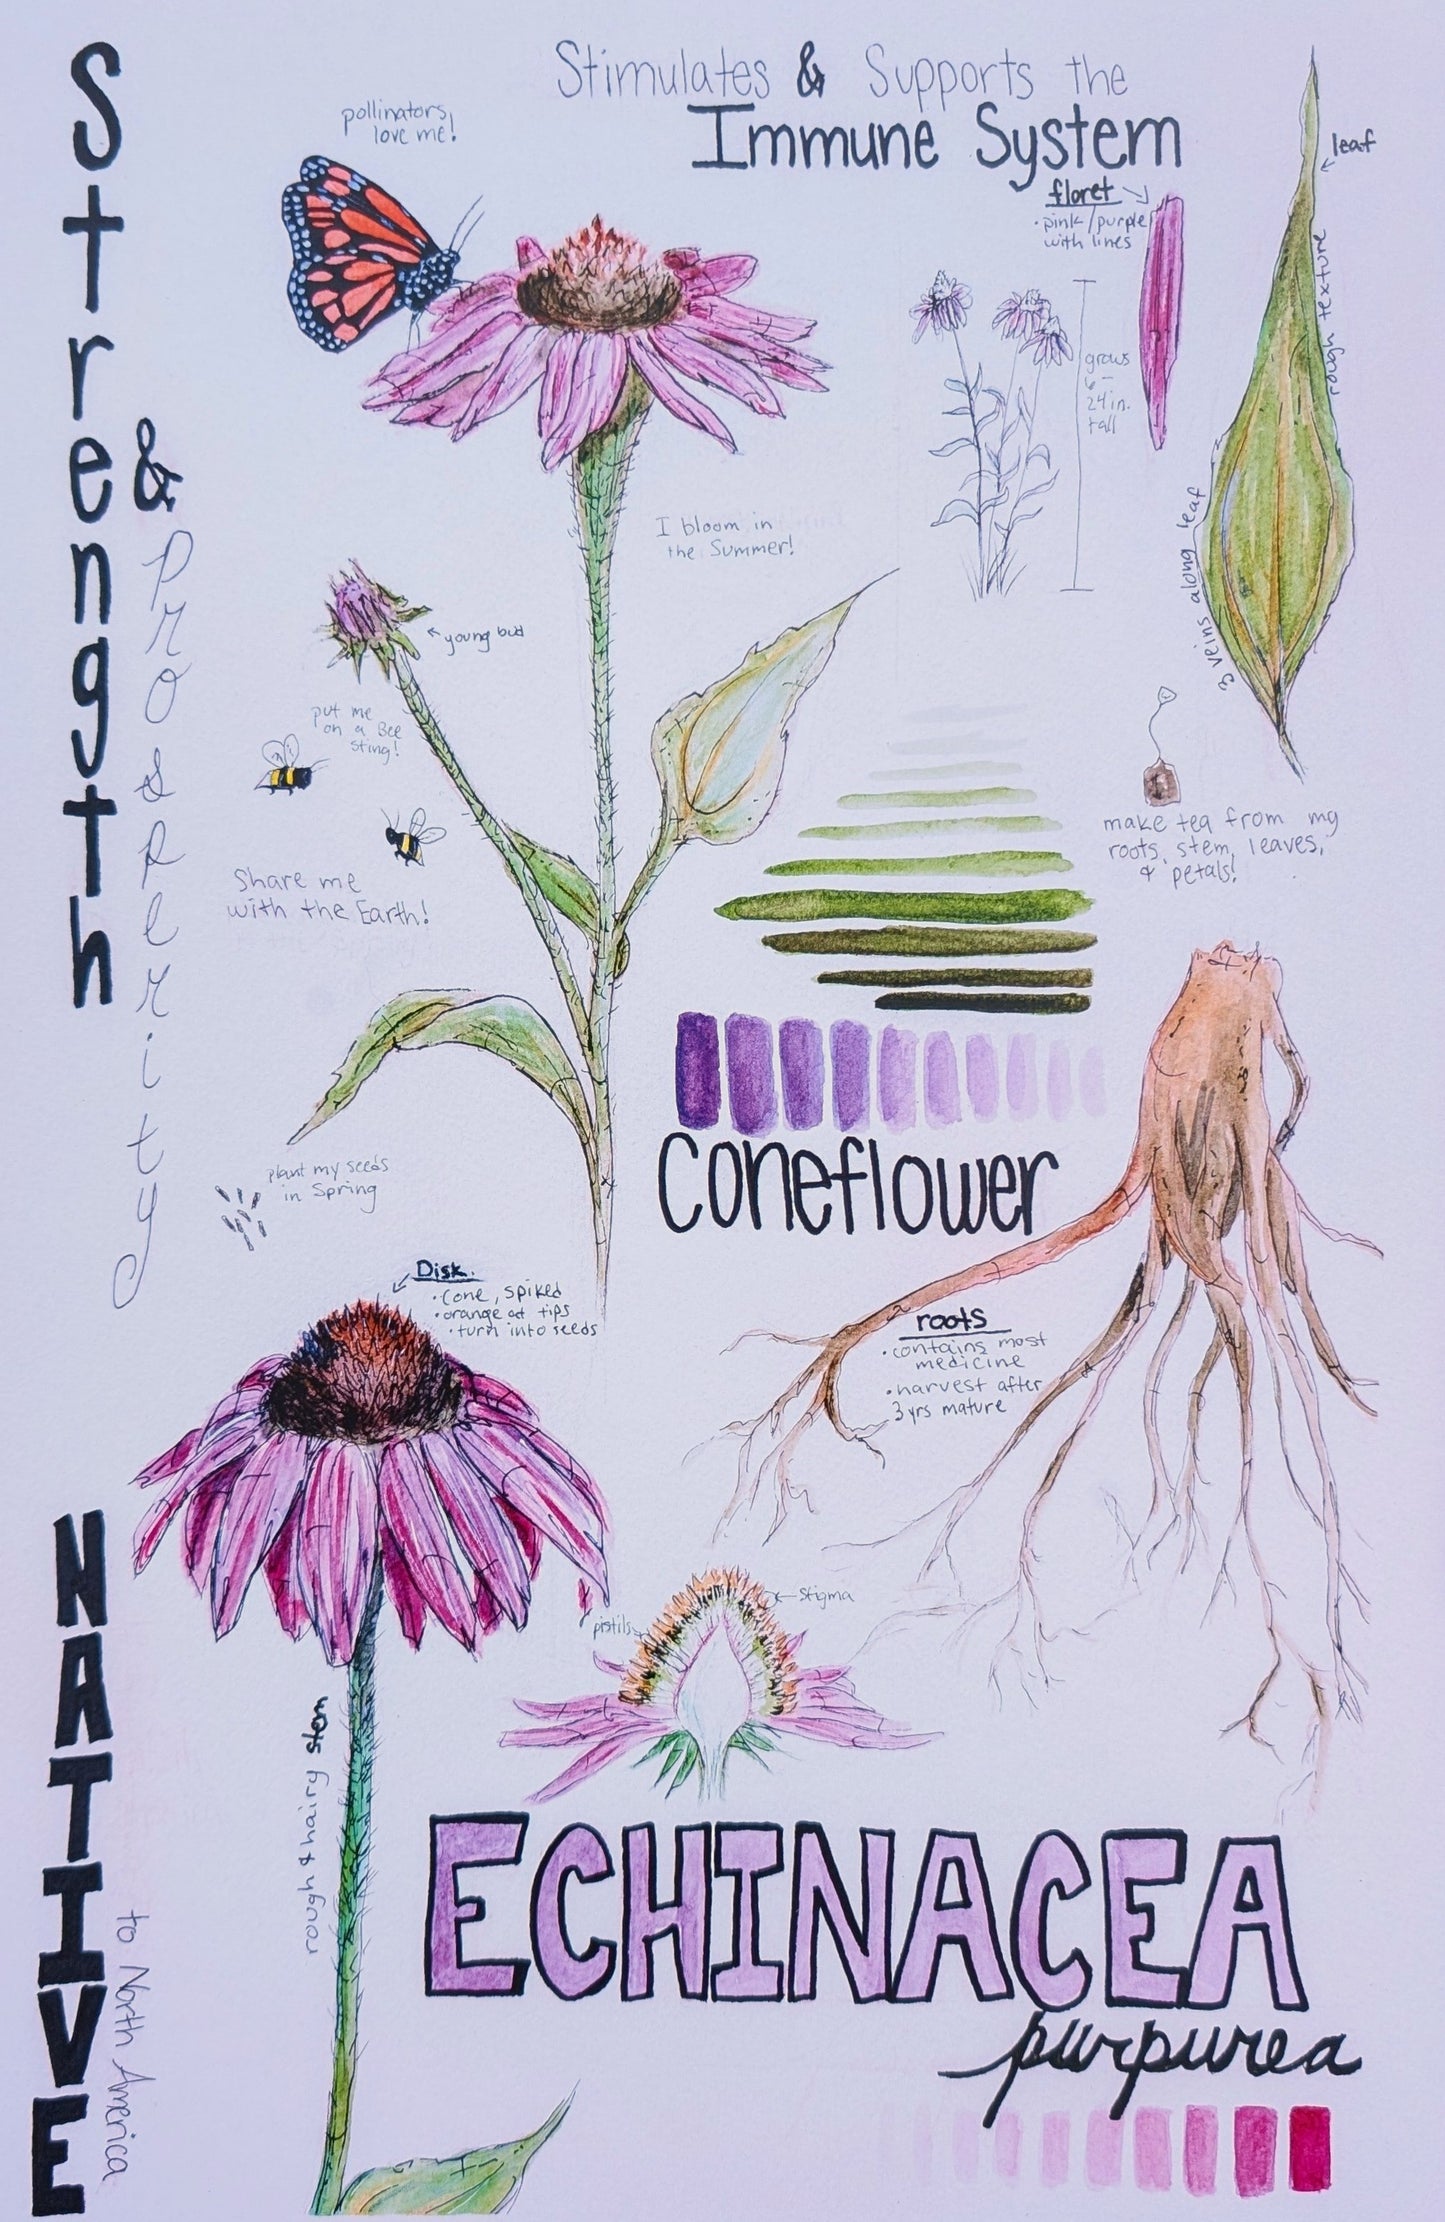 Strength
& Prosperity
pollinators
love me!
Stimulates & Supports the
Immune System
floret
• pink/purple
with lines
leaf
rough texture
3 veins along leaf
grows
6-
24in.
tall
I bloom in
the Summer!
young bud
put me
on a Bee
Sting!
Share me
with the Earth!
make tea from my
roots, stem, leaves,
& petals!
Coneflower
plant my seeds
in Spring
Disk
• cone, spiked
• orange at tips
• turn into seeds
roots
• contains most
medicine
• harvest after
3 yrs mature
stigma
pistils
rough & hairy stem
NATIVE
to North America
ECHINACEA
purpurea